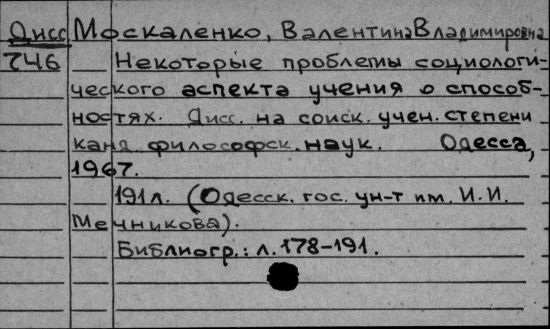 Дисс Москаленко, Валентина Владимировна
746 Некоторые проблемы социологи-
ческого аспекта учения о способ-
ностях. Дисс. на соиск. учен. степени
канд. философск. наук. Одесса,
1967.
191 л. (Одесск. гос. ун-т им. И. И.
Мечникова).
Библиогр.: л. 178-191.